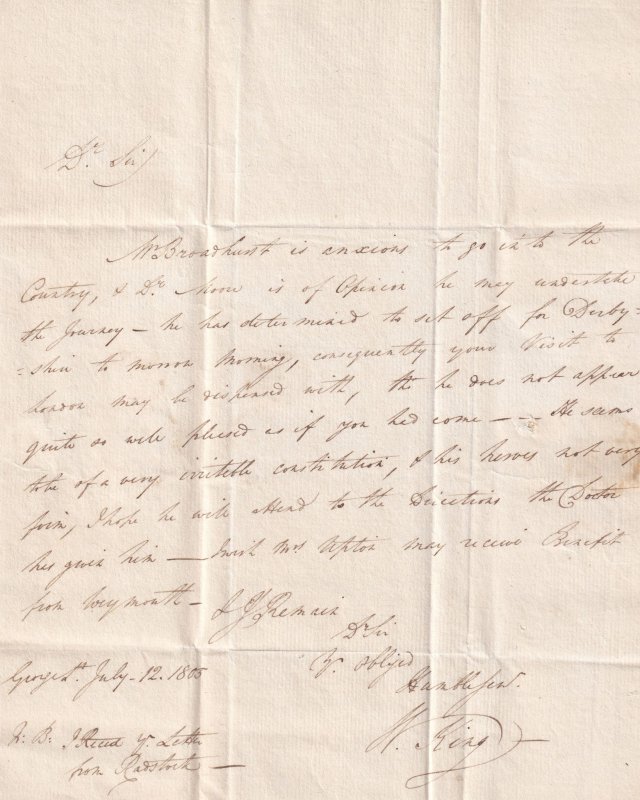 Dr. Sir
Mr Broadhurst is anxious to go into the
Country, & Dr. Moore is of Opinion he may undertake
the Journey – he has determined to set off for Derby=
=shire to morrow Morning, consequently your Visit to
London may be dispensed with, tho he does not appear
quite so well pleased as if you had come – – He seems
to be of a very irritable constitution, & his nerves not very
firm, I hope he will attend to the Directions the Doctor
has given him — I wish Mrs Upton may receive Benefit
from Weymouth – & I Remain
Dr Sir
Yr. obliged
Humble Servt.
W. King
George St. July – 12 – 1805
N: B: I Reced yr. Letter
from Radstock –